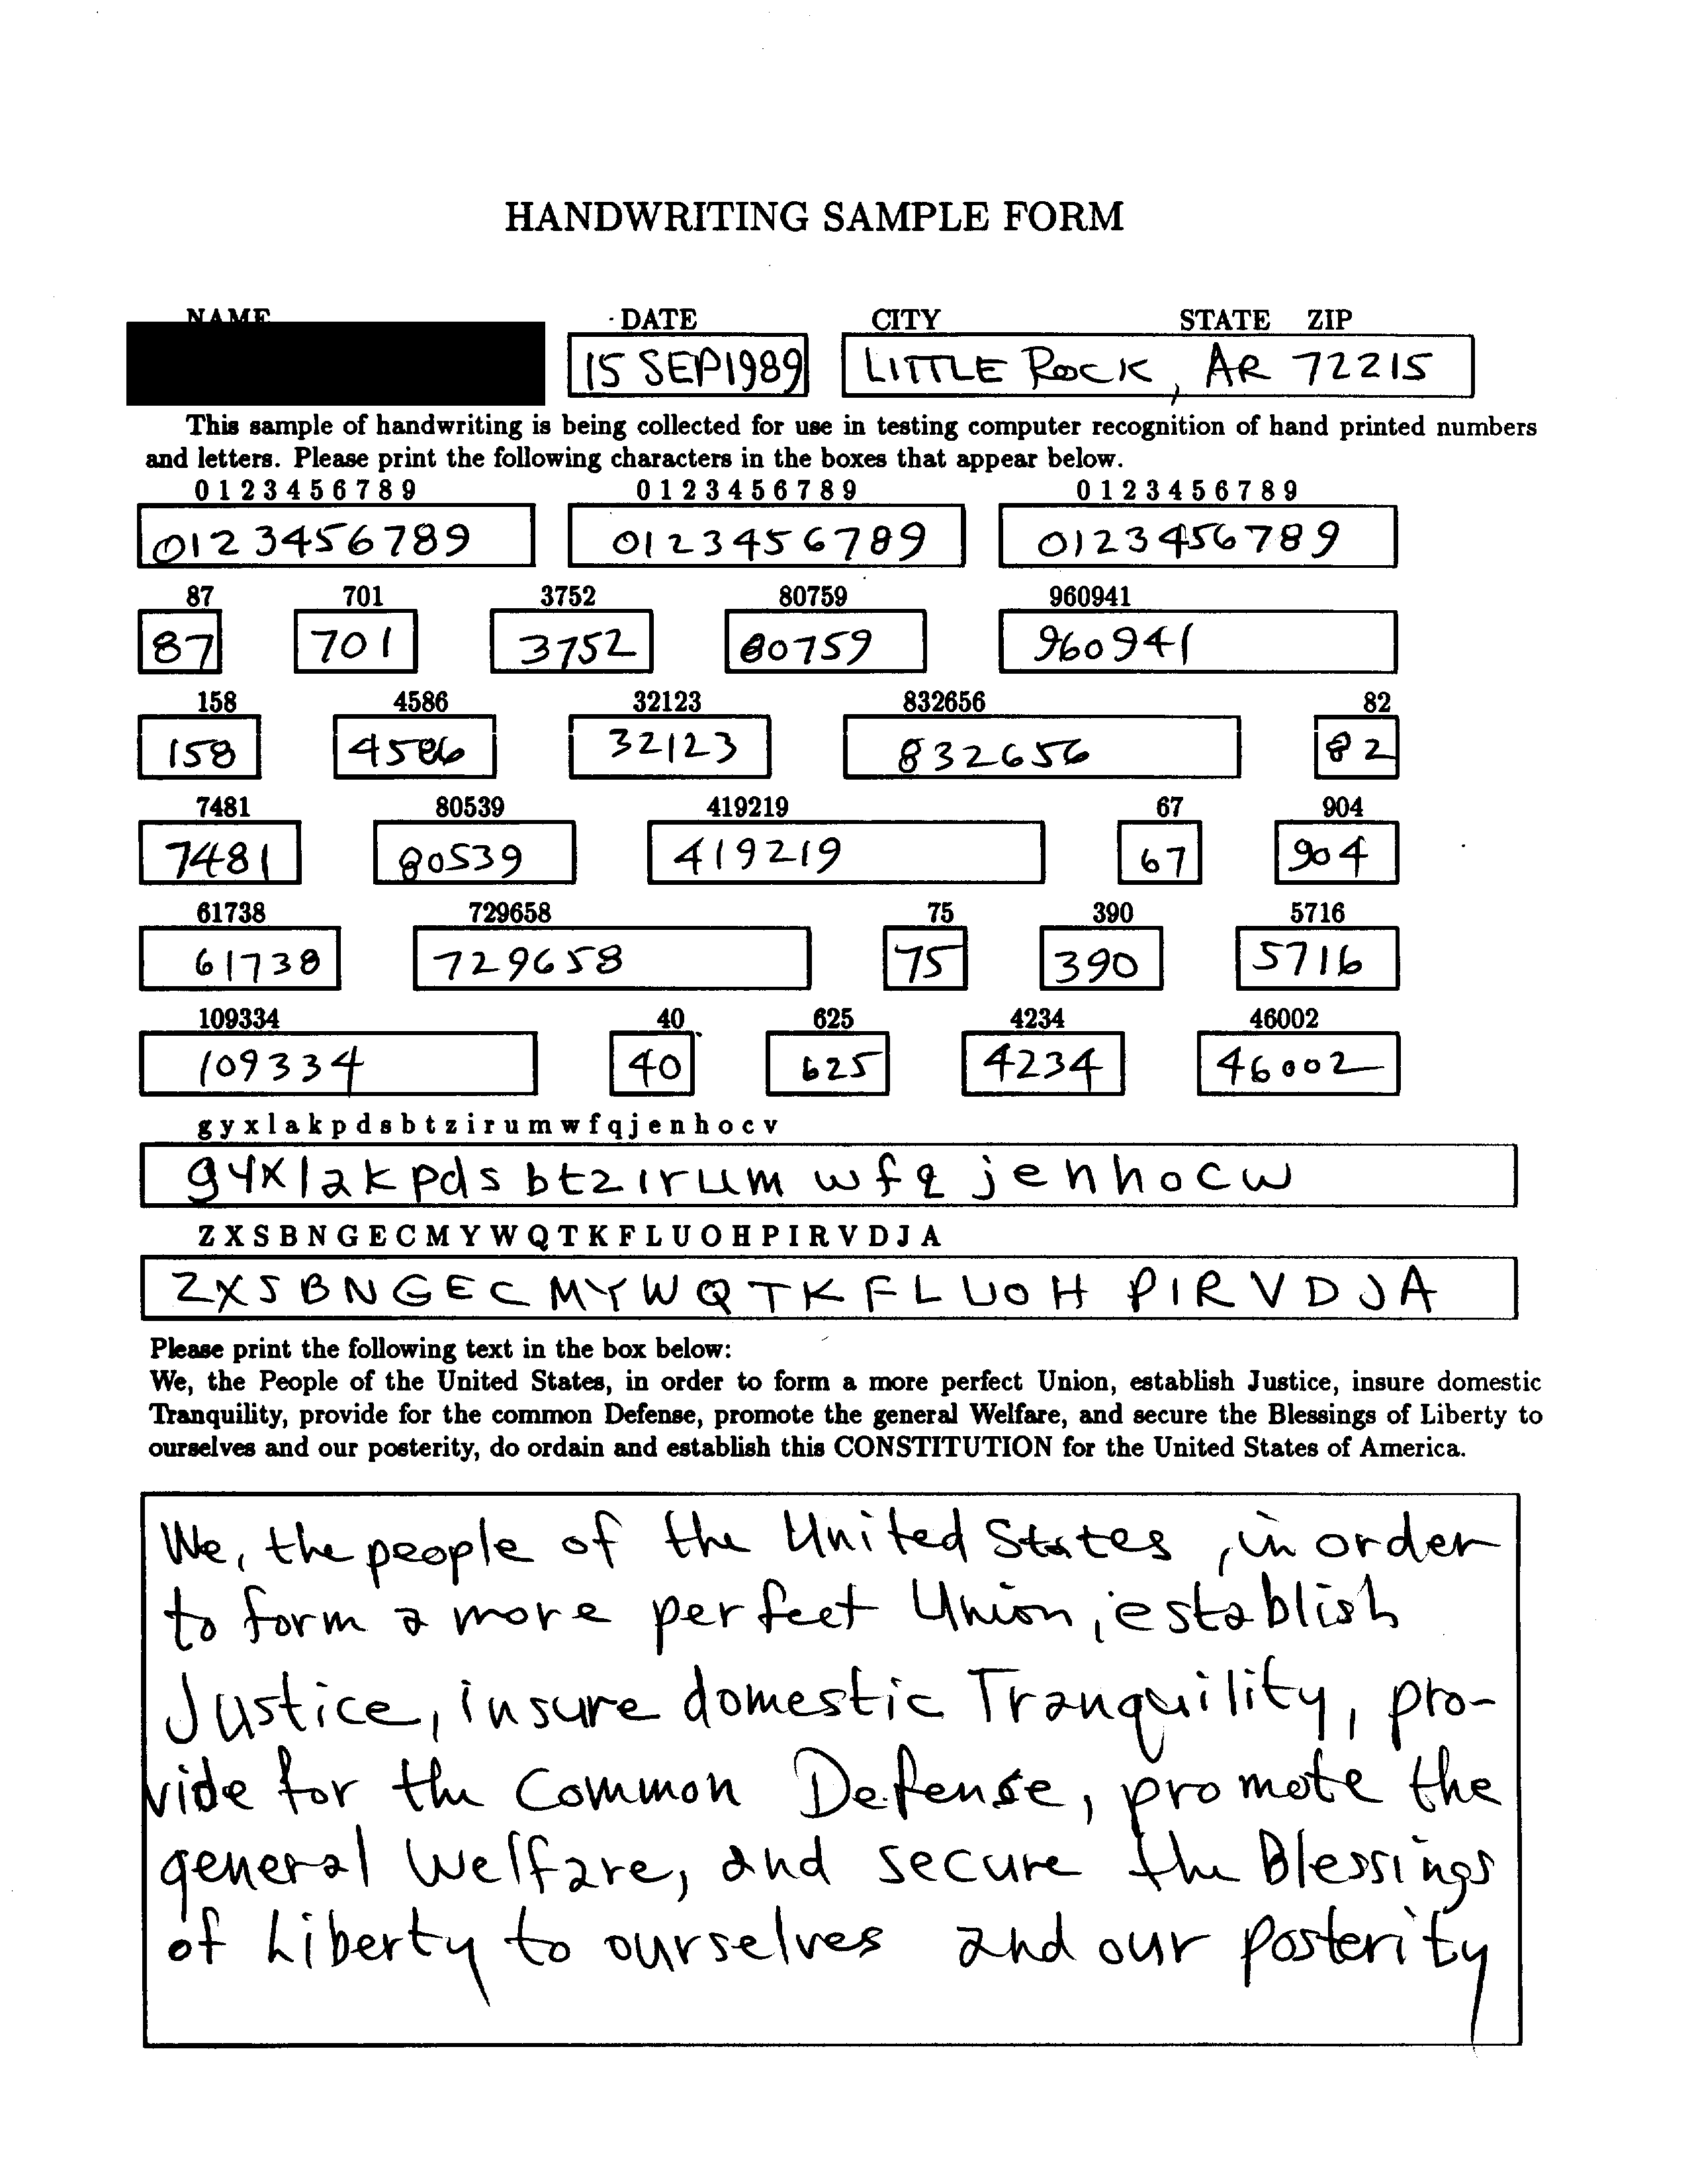 HANDWRITING SAMPLE FORM
NAME DATE CITY STATE ZIP
15 SEP1989 LITTLE ROCK, AR 72215
This sample of handwriting is being collected for use in testing computer recognition of hand printed numbers
and letters. Please print the following characters in the boxes that appear below.
0 1 2 3 4 5 6 7 8 9 0 1 2 3 4 5 6 7 8 9 0 1 2 3 4 5 6 7 8 9
0123456789 0123456789 0123456789
87 701 3752 80759 960941
87 701 3752 80759 960941
158 4586 32123 832656 82
158 4586 32123 832656 82
7481 80539 419219 67 904
7481 80539 419219 67 904
61738 729658 75 390 5716
61738 729658 75 390 5716
109334 40 625 4234 46002
109334 40 625 4234 46002
g y x l a k p d s b t z i r u m w f q j e n h o c v
gyxlakpdsbtzirumwfqjenhocw
Z X S B N G E C M Y W Q T K F L U O H P I R V D J A
ZXSBNGECMYWQTKFLUOHPIRVDJA
Please print the following text in the box below:
We, the People of the United States, in order to form a more perfect Union, establish Justice, insure domestic
Tranquility, provide for the common Defense, promote the general Welfare, and secure the Blessings of Liberty to
ourselves and our posterity, do ordain and establish this CONSTITUTION for the United States of America.
We, the people of the United States, in order
to form a more perfect Union, establish
Justice, insure domestic Tranquility, pro-
vide for the Common Defense, promote the
general Welfare, and secure the Blessings
of Liberty to ourselves and our posterity